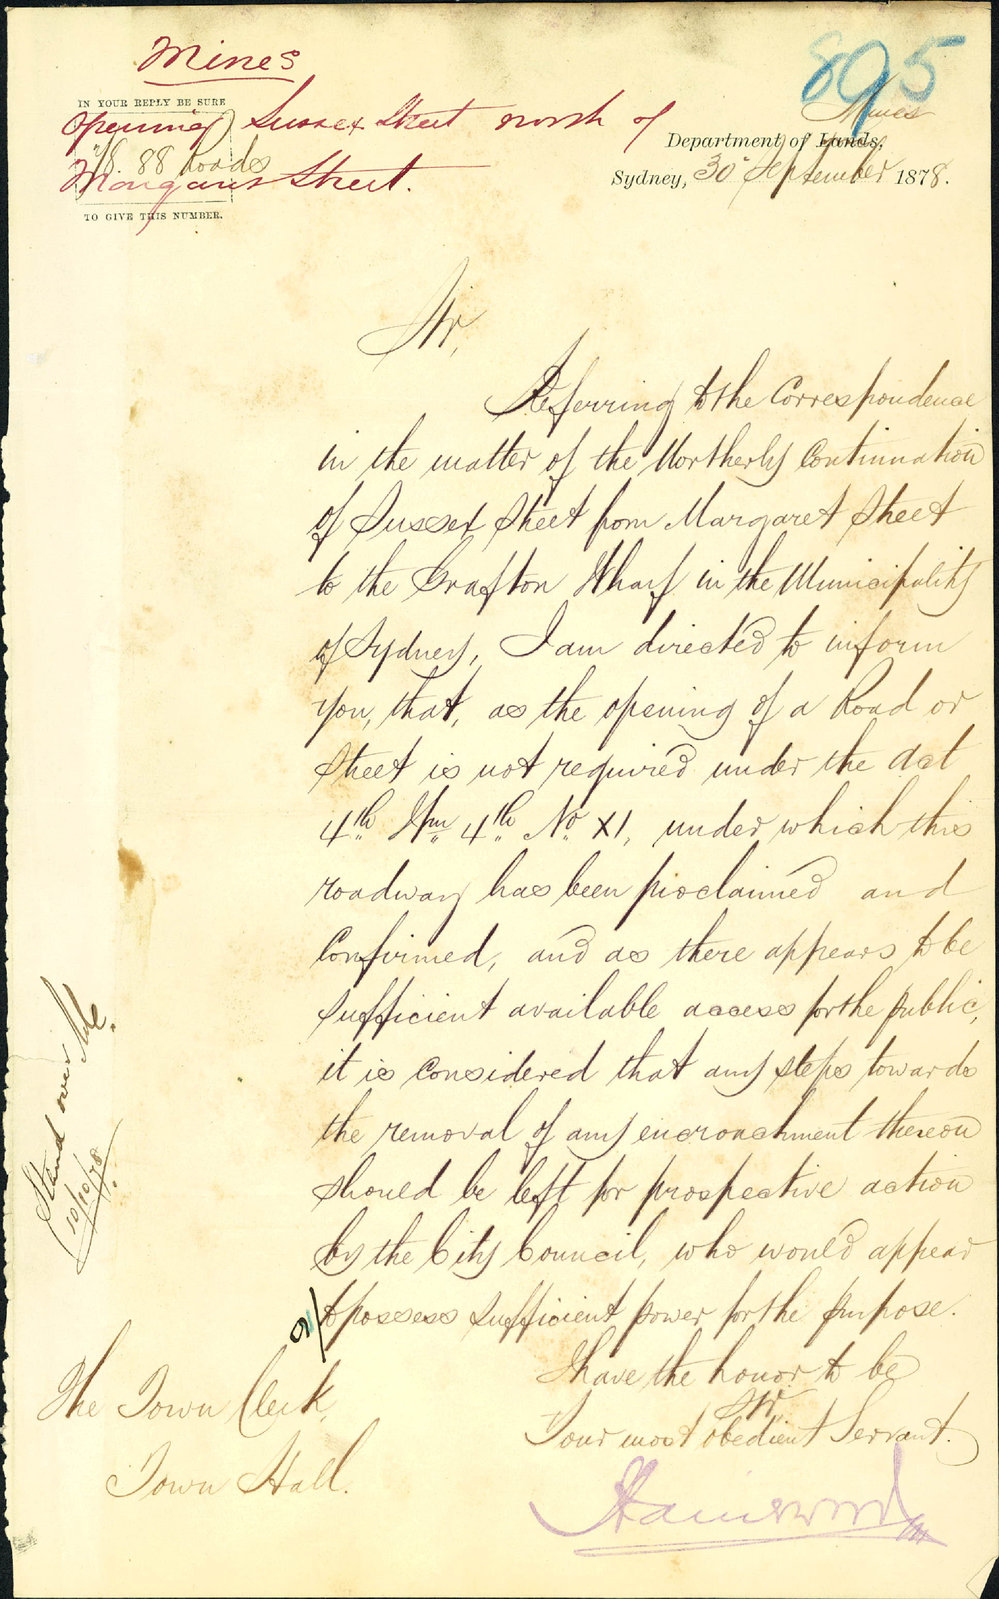 Mines
895
IN YOUR REPLY BE SURE
Opening Sussex Street north of
78. 88 Roads
Margaret Street.
TO GIVE THIS NUMBER.
Mines
Department of Lands,
Sydney, 30th September 1878.
Sir,
Referring to the Correspondence
in the matter of the Northerly Continuation
of Sussex Street from Margaret Street
to the Grafton Wharf in the Municipality
of Sydney, I am directed to inform
you, that, as the opening of a Road or
Street is not required under the Act
4th Wm 4th No XI, under which this
roadway has been proclaimed and
Confirmed, and as there appears to be
sufficient available access for the public,
it is considered that any steps towards
the removal of any encroachment thereon
should be left for prospective action
by the City Council, who would appear
to possess sufficient power for the purpose.
I have the honor to be
Sir
Your most obedient Servant.
The Town Clerk,
Town Hall.
Stand over
10/10/78